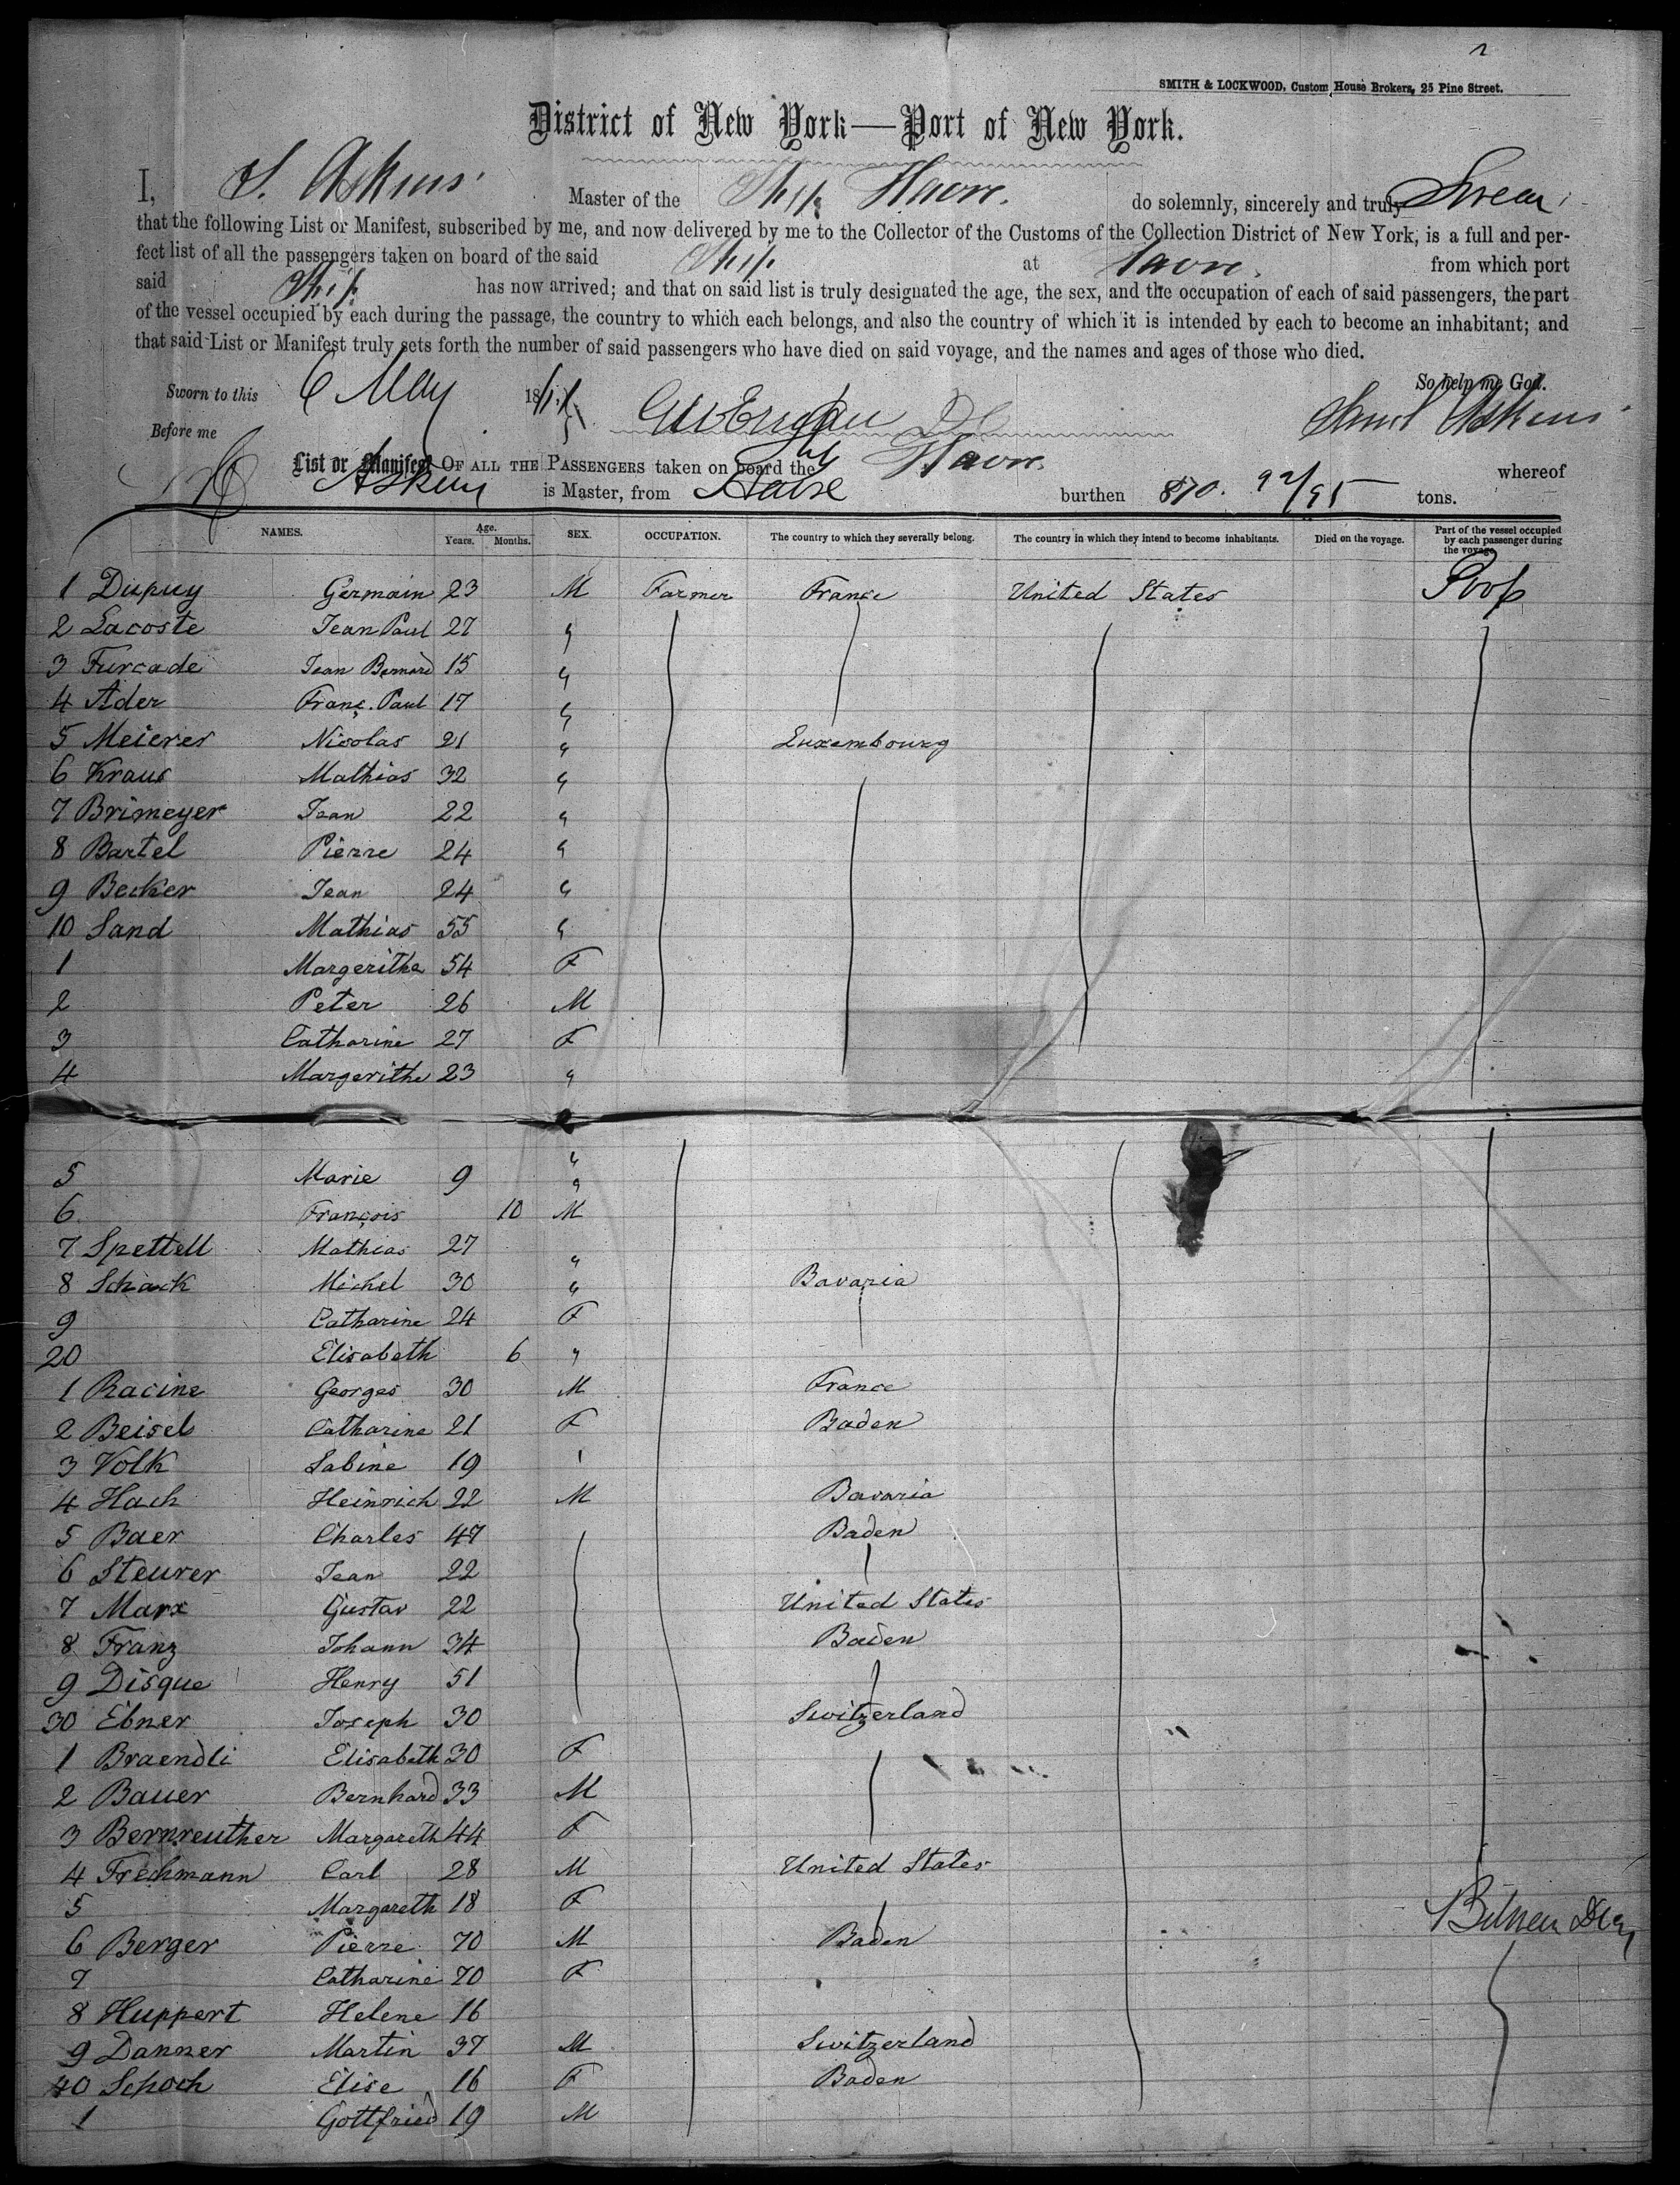 2
SMITH & LOCKWOOD, Custom House Brokers, 25 Pine Street.
District of New York—Port of New York.
I, S. Askins Master of the Ship Havre. do solemnly, sincerely and truly Swear
that the following List or Manifest, subscribed by me, and now delivered by me to the Collector of the Customs of the Collection District of New York, is a full and per-
fect list of all the passengers taken on board of the said Ship at Havre. from which port
said Ship has now arrived; and that on said list is truly designated the age, the sex, and the occupation of each of said passengers, the part
of the vessel occupied by each during the passage, the country to which each belongs, and also the country of which it is intended by each to become an inhabitant; and
that said List or Manifest truly sets forth the number of said passengers who have died on said voyage, and the names and ages of those who died.
So help me God.
Sworn to this 6 May 18
Saml Askins
Before me
List or Manifest OF ALL THE PASSENGERS taken on board the Havre. whereof
Askins is Master, from Havre burthen 870. 92/95 tons.
NAMES. Age. Years. Months. SEX. OCCUPATION. The country to which they severally belong. The country in which they intend to become inhabitants. Died on the voyage. Part of the vessel occupied by each passenger during the voyage.
1 Dupuy Germain 23 M Farmer France United States Poop
2 Lacoste Jean Paul 27 "
3 Furcade Jean Bernard 15 "
4 Ader Franç. Paul 17 "
5 Meierer Nicolas 21 " Luxembourg
6 Kraus Mathias 32 "
7 Brimeyer Jean 22 "
8 Bartel Pierre 24 "
9 Becker Jean 24 "
10 Sand Mathias 55 "
1 Margerithe 54 F
2 Peter 26 M
3 Catharine 27 F
4 Margerithe 23 "
5 Marie 9 "
6 François 10 M
7 Spettell Mathias 27 "
8 Schack Michel 30 " Bavaria
9 Catharine 24 F
20 Elisabeth 6 "
1 Racine Georges 30 M France
2 Beisel Catharine 21 F Baden
3 Volk Sabine 19 "
4 Hach Heinrich 22 M Bavaria
5 Baer Charles 47 Baden
6 Steurer Jean 22
7 Marx Gustav 22 United States
8 Franz Johann 34 Baden
9 Disque Henry 51
30 Ebner Joseph 30 Switzerland
1 Braendli Elisabeth 30 F
2 Bauer Bernhard 33 M
3 Bernreuther Margareth 44 F
4 Frechmann Carl 28 M United States
5 Margareth 18 F
6 Berger Pierre 70 M Baden
7 Catharine 70 F
8 Huppert Helene 16
9 Danner Martin 37 M Switzerland
40 Schoch Elise 16 F Baden
1 Gottfried 19 M